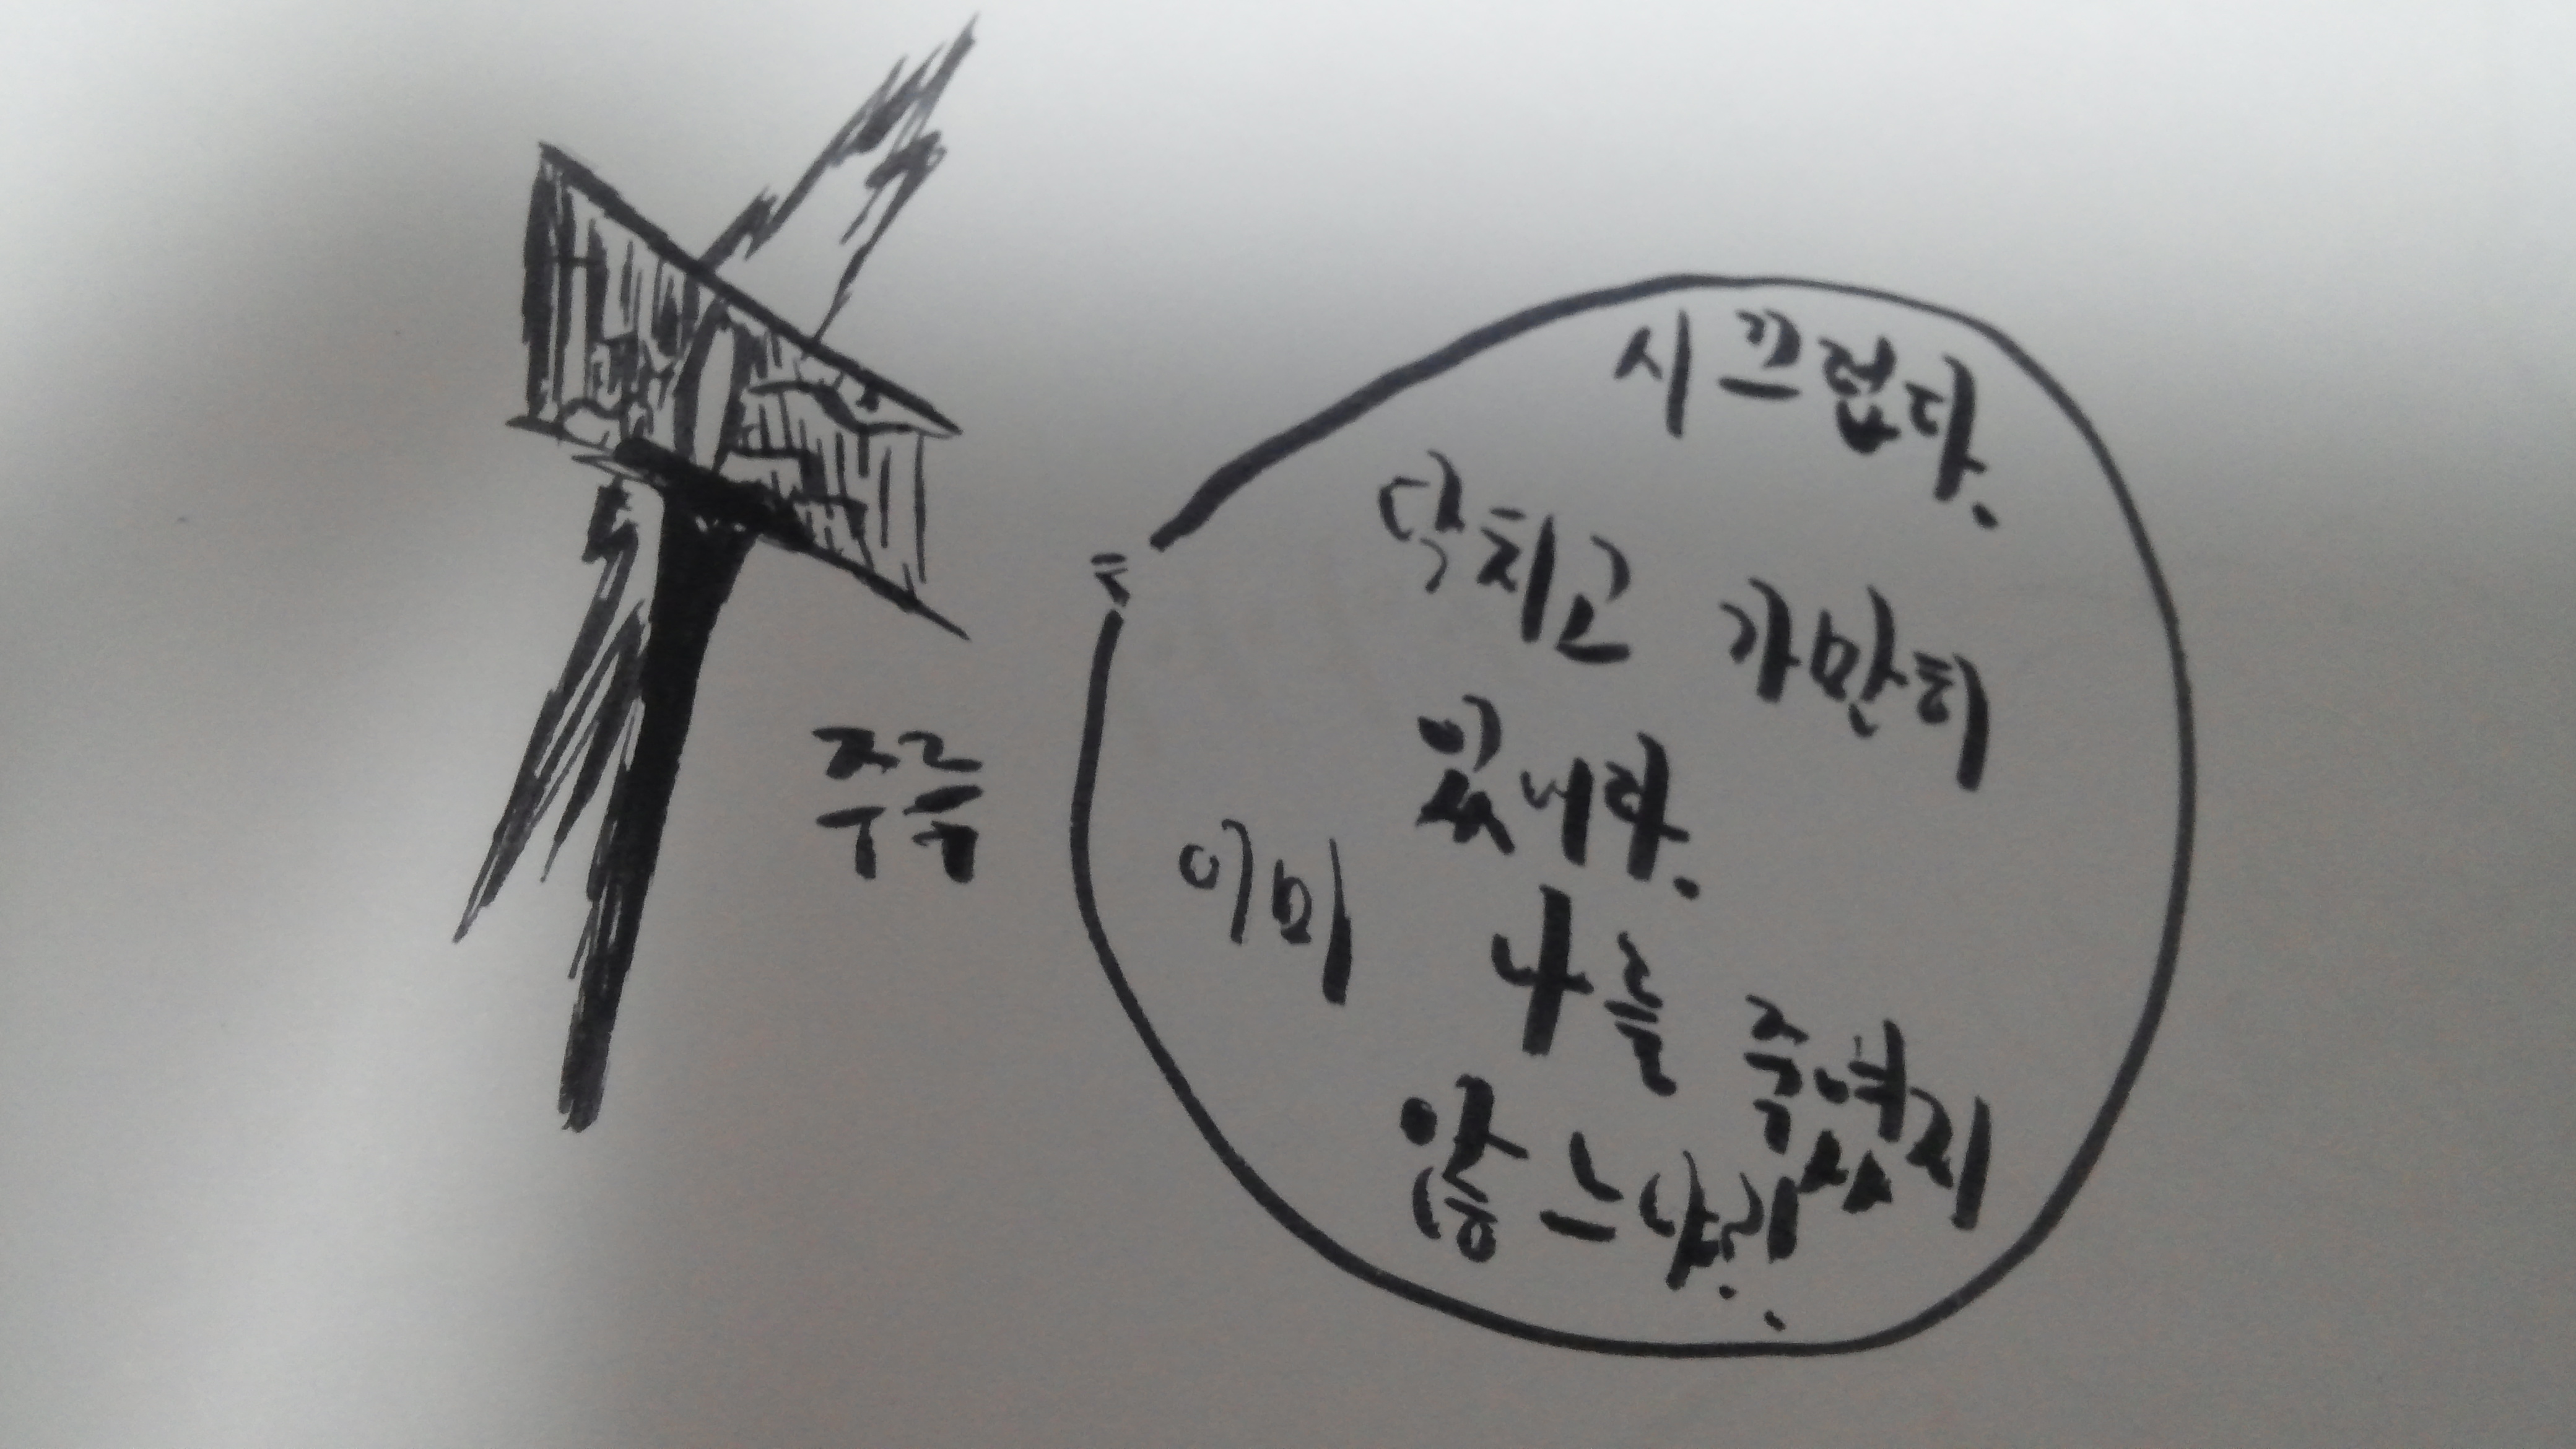 시끄럽다.
닥치고 가만히
있너라.
이미 나를 죽였지
않느냐?!
주륵